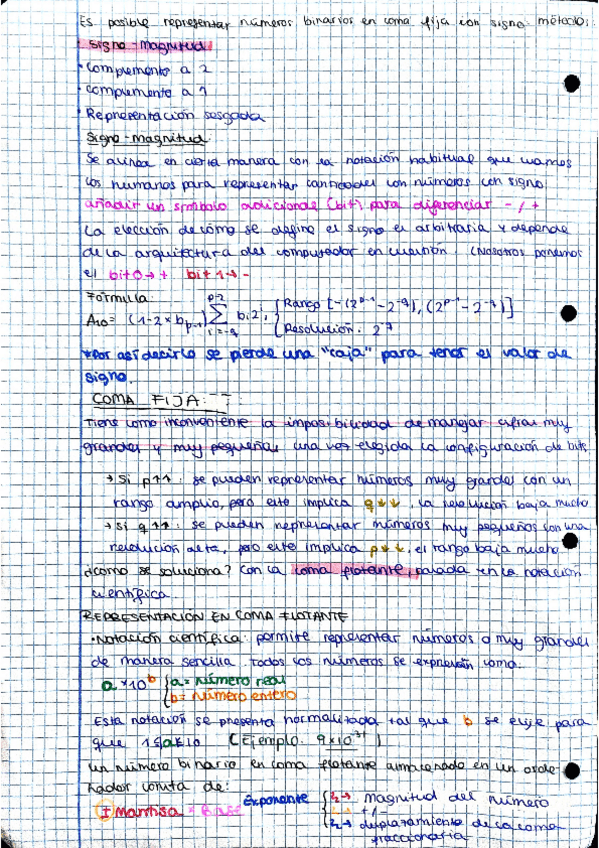 Es posible representar números binarios en coma fija con signo: método:
· Signo-magnitud
· Complemento a 2
· Complemento a 1
· Representación sesgada
Signo-magnitud:
Se alinea en cierta manera con la notación habitual que usamos
los humanos para representar cantidades con números con signo
añadir un símbolo adicional (bit) para diferenciar - / +
La elección de cómo se define el signo es arbitraria y depende
de la arquitectura del computador en cuestión. (Nosotros ponemos
el bit 0 → + bit 1 → -
Fórmula:
A₁₀ = (1-2×b_{p-1}) ∑_{i=-q}^{p-2} b_i 2^i ; { Rango [-(2^{p-1} - 2^{-q}), (2^{p-1} - 2^{-q})]
Resolución. 2^{-q}
*Por así decirlo se pierde una "caja" para tener el valor de
signo.
COMA FIJA:
Tiene como inconveniente la imposibilidad de manejar cifras muy
grandes y muy pequeñas, una vez elegida la configuración de bits
→ Si p↑↑: se pueden representar números muy grandes con un
rango amplio, pero esto implica q↓↓, la resolución baja mucho
→ Si q↑↑: se pueden representar números muy pequeños con una
resolución alta, pero esto implica p↓↓, el rango baja mucho
¿como se soluciona? Con la coma flotante, basada en la notación
científica.
REPRESENTACIÓN EN COMA FLOTANTE
· Notación científica: permite representar números o muy grandes
de manera sencilla. todos los números se expresan como:
a × 10^b { a = número real
b = número entero
Esta notación se presenta normalizada tal que b se elije para
que 1≤a≤10 (Ejemplo. 9×10^{31})
un número binario en coma flotante almacenado en un orde
nador consta de:
± Mantisa × Base^{Exponente} { → magnitud del número
→ +/-
→ desplazamiento de la coma
fraccionaria